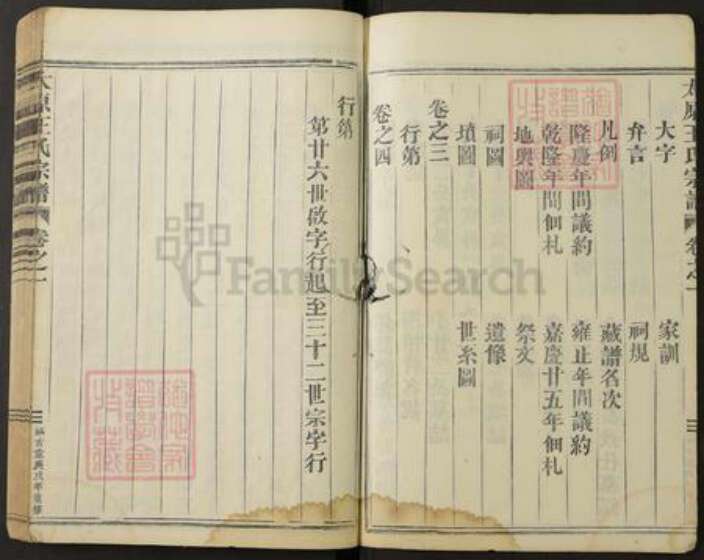 太原王氏宗譜
卷之一
大字
家訓
弁言
祠規
凡例
藏譜名次
隆慶年間議約
雍正年間議約
乾隆年間佃札
嘉慶廿五年佃札
地輿圖
祭文
祠圖
遺像
墳圖
世系圖
卷之三
行第
卷之四
行第
第廿六世啟字行起至三十二世宗字行
太原王氏宗譜
卷之一
FamilySearch